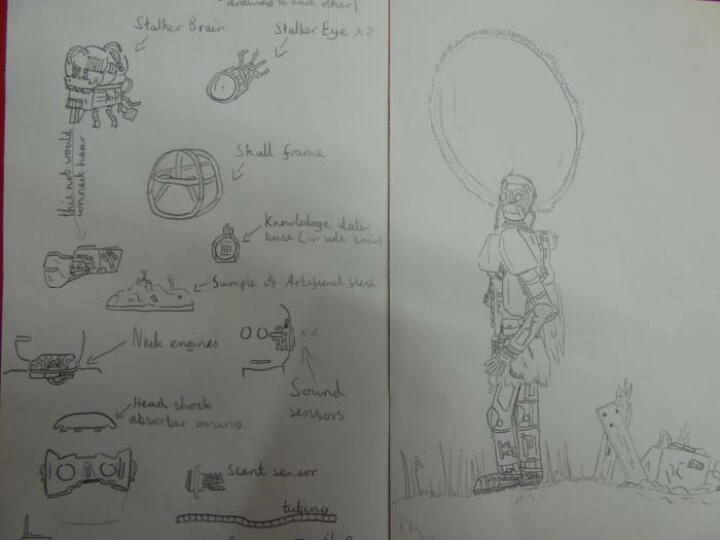 drawing to each other)
Stalker Brain
Stalker Eye x2
this not would
connect hear
Skull frame
Knowledge dater
base (in side brain)
Sample of Artificial flesh.
Neck engines
x2
Sound
sensors
Head shock
absorber casing
Scent sensor
tubing